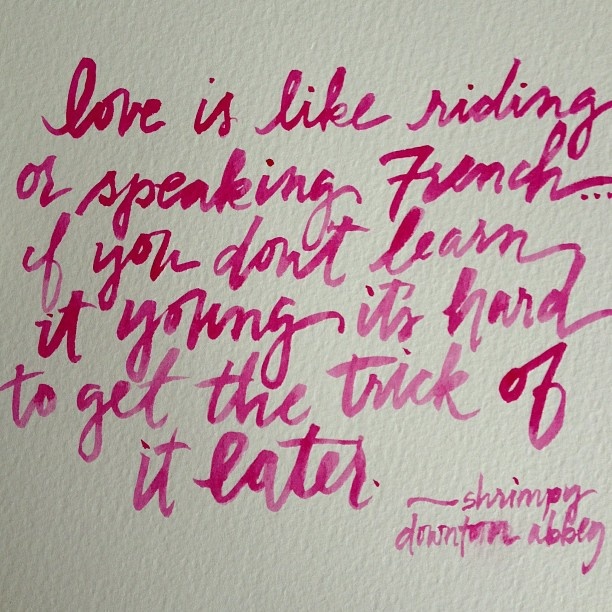 love is like riding
or speaking French...
if you don't learn
it young it's hard
to get the trick of
it later.
~ shrimpy
downton abbey